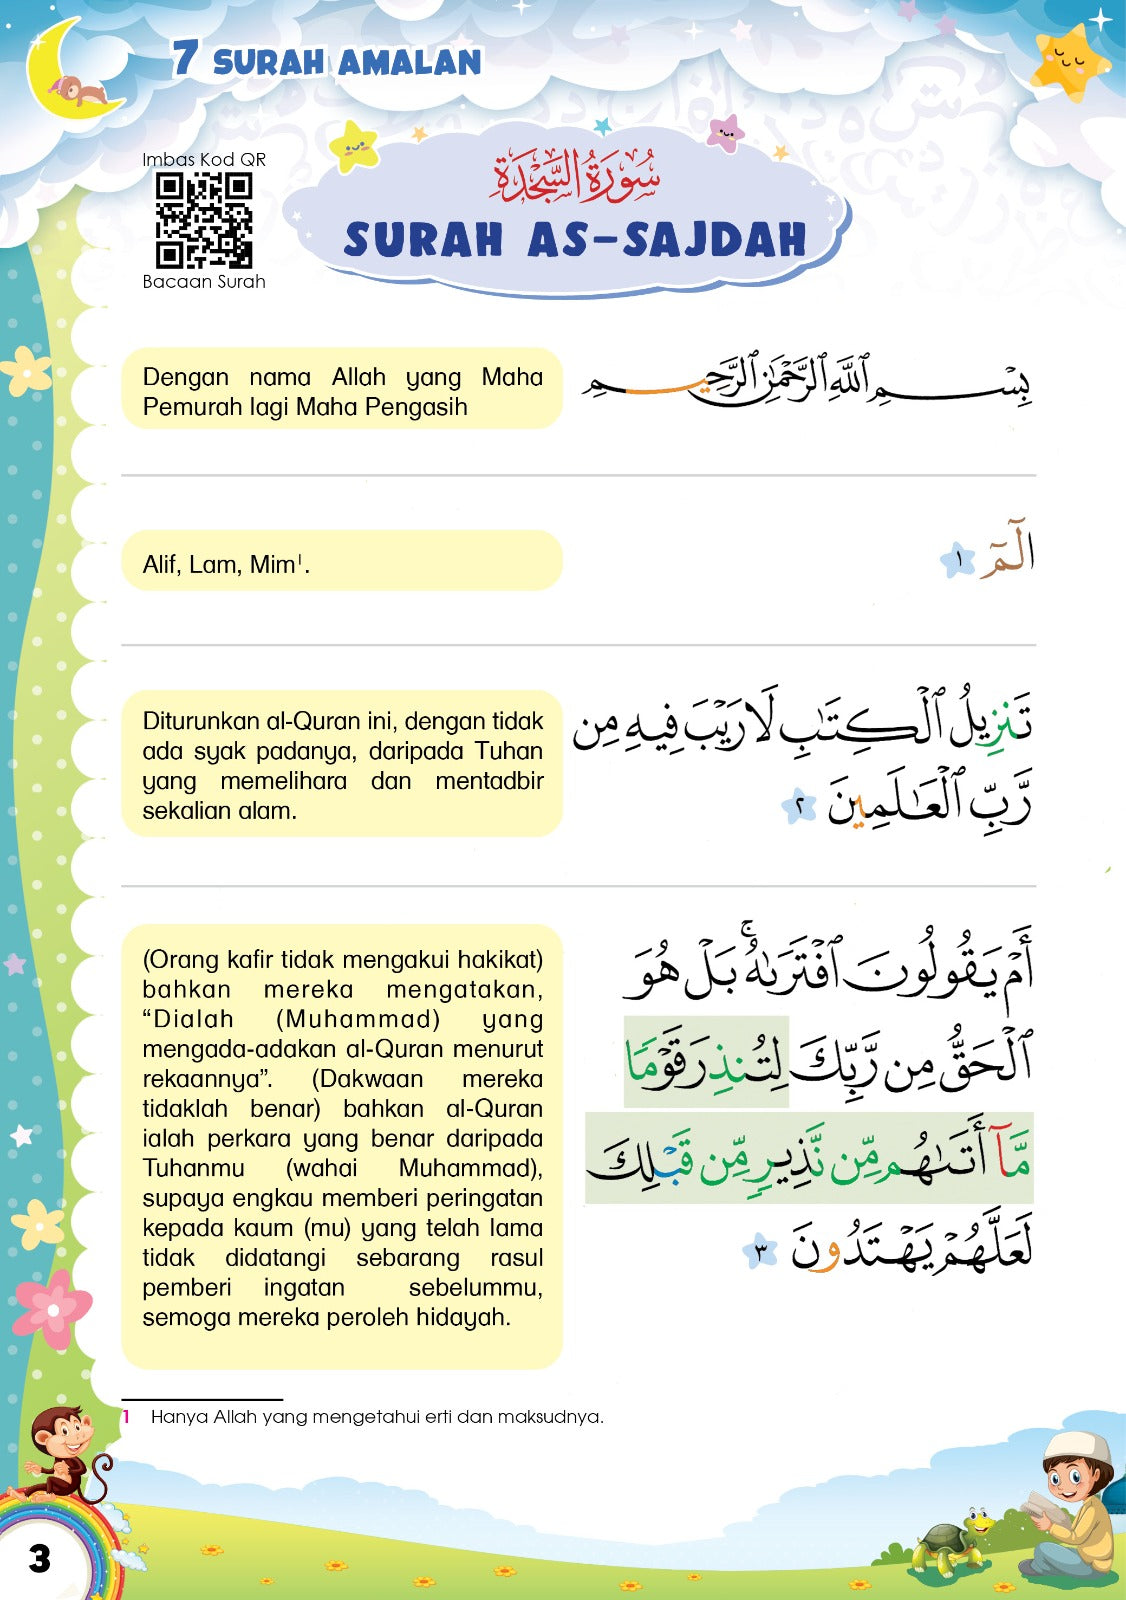 7 SURAH AMALAN
Imbas Kod QR
Bacaan Surah
سُورَةُ السَّجْدَةِ
SURAH AS-SAJDAH
Dengan nama Allah yang Maha
Pemurah lagi Maha Pengasih
بِسْمِ ٱللَّهِ ٱلرَّحْمَٰنِ ٱلرَّحِيمِ
Alif, Lam, Mim¹.
الٓمٓ ١
Diturunkan al-Quran ini, dengan tidak
ada syak padanya, daripada Tuhan
yang memelihara dan mentadbir
sekalian alam.
تَنزِيلُ ٱلْكِتَٰبِ لَا رَيْبَ فِيهِ مِن
رَّبِّ ٱلْعَٰلَمِينَ ٢
(Orang kafir tidak mengakui hakikat)
bahkan mereka mengatakan,
“Dialah (Muhammad) yang
mengada-adakan al-Quran menurut
rekaannya”. (Dakwaan mereka
tidaklah benar) bahkan al-Quran
ialah perkara yang benar daripada
Tuhanmu (wahai Muhammad),
supaya engkau memberi peringatan
kepada kaum (mu) yang telah lama
tidak didatangi sebarang rasul
pemberi ingatan sebelummu,
semoga mereka peroleh hidayah.
أَمْ يَقُولُونَ ٱفْتَرَىٰهُ ۚ بَلْ هُوَ
ٱلْحَقُّ مِن رَّبِّكَ لِتُنذِرَ قَوْمًا
مَّآ أَتَىٰهُم مِّن نَّذِيرٍ مِّن قَبْلِكَ
لَعَلَّهُمْ يَهْتَدُونَ ٣
1 Hanya Allah yang mengetahui erti dan maksudnya.
3